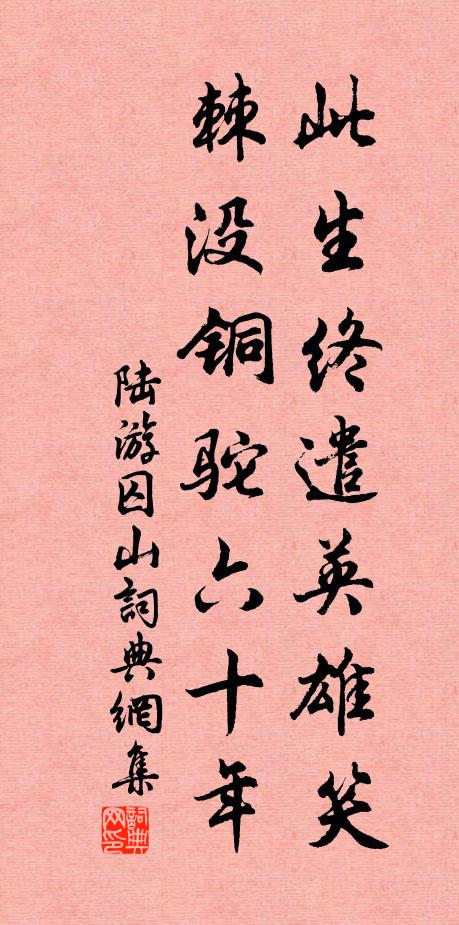 此生终遣英雄笑
棘没铜驼六十年
陆游囚山詞典網集
詞典网印